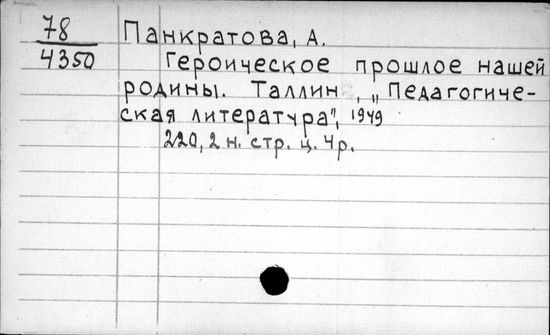 78
4350
Панкратова, А.
Героическое прошлое нашей
родины. Таллин, „Педагогиче-
ская литература", 1949
220, 2 н. стр. ц. 4 р.